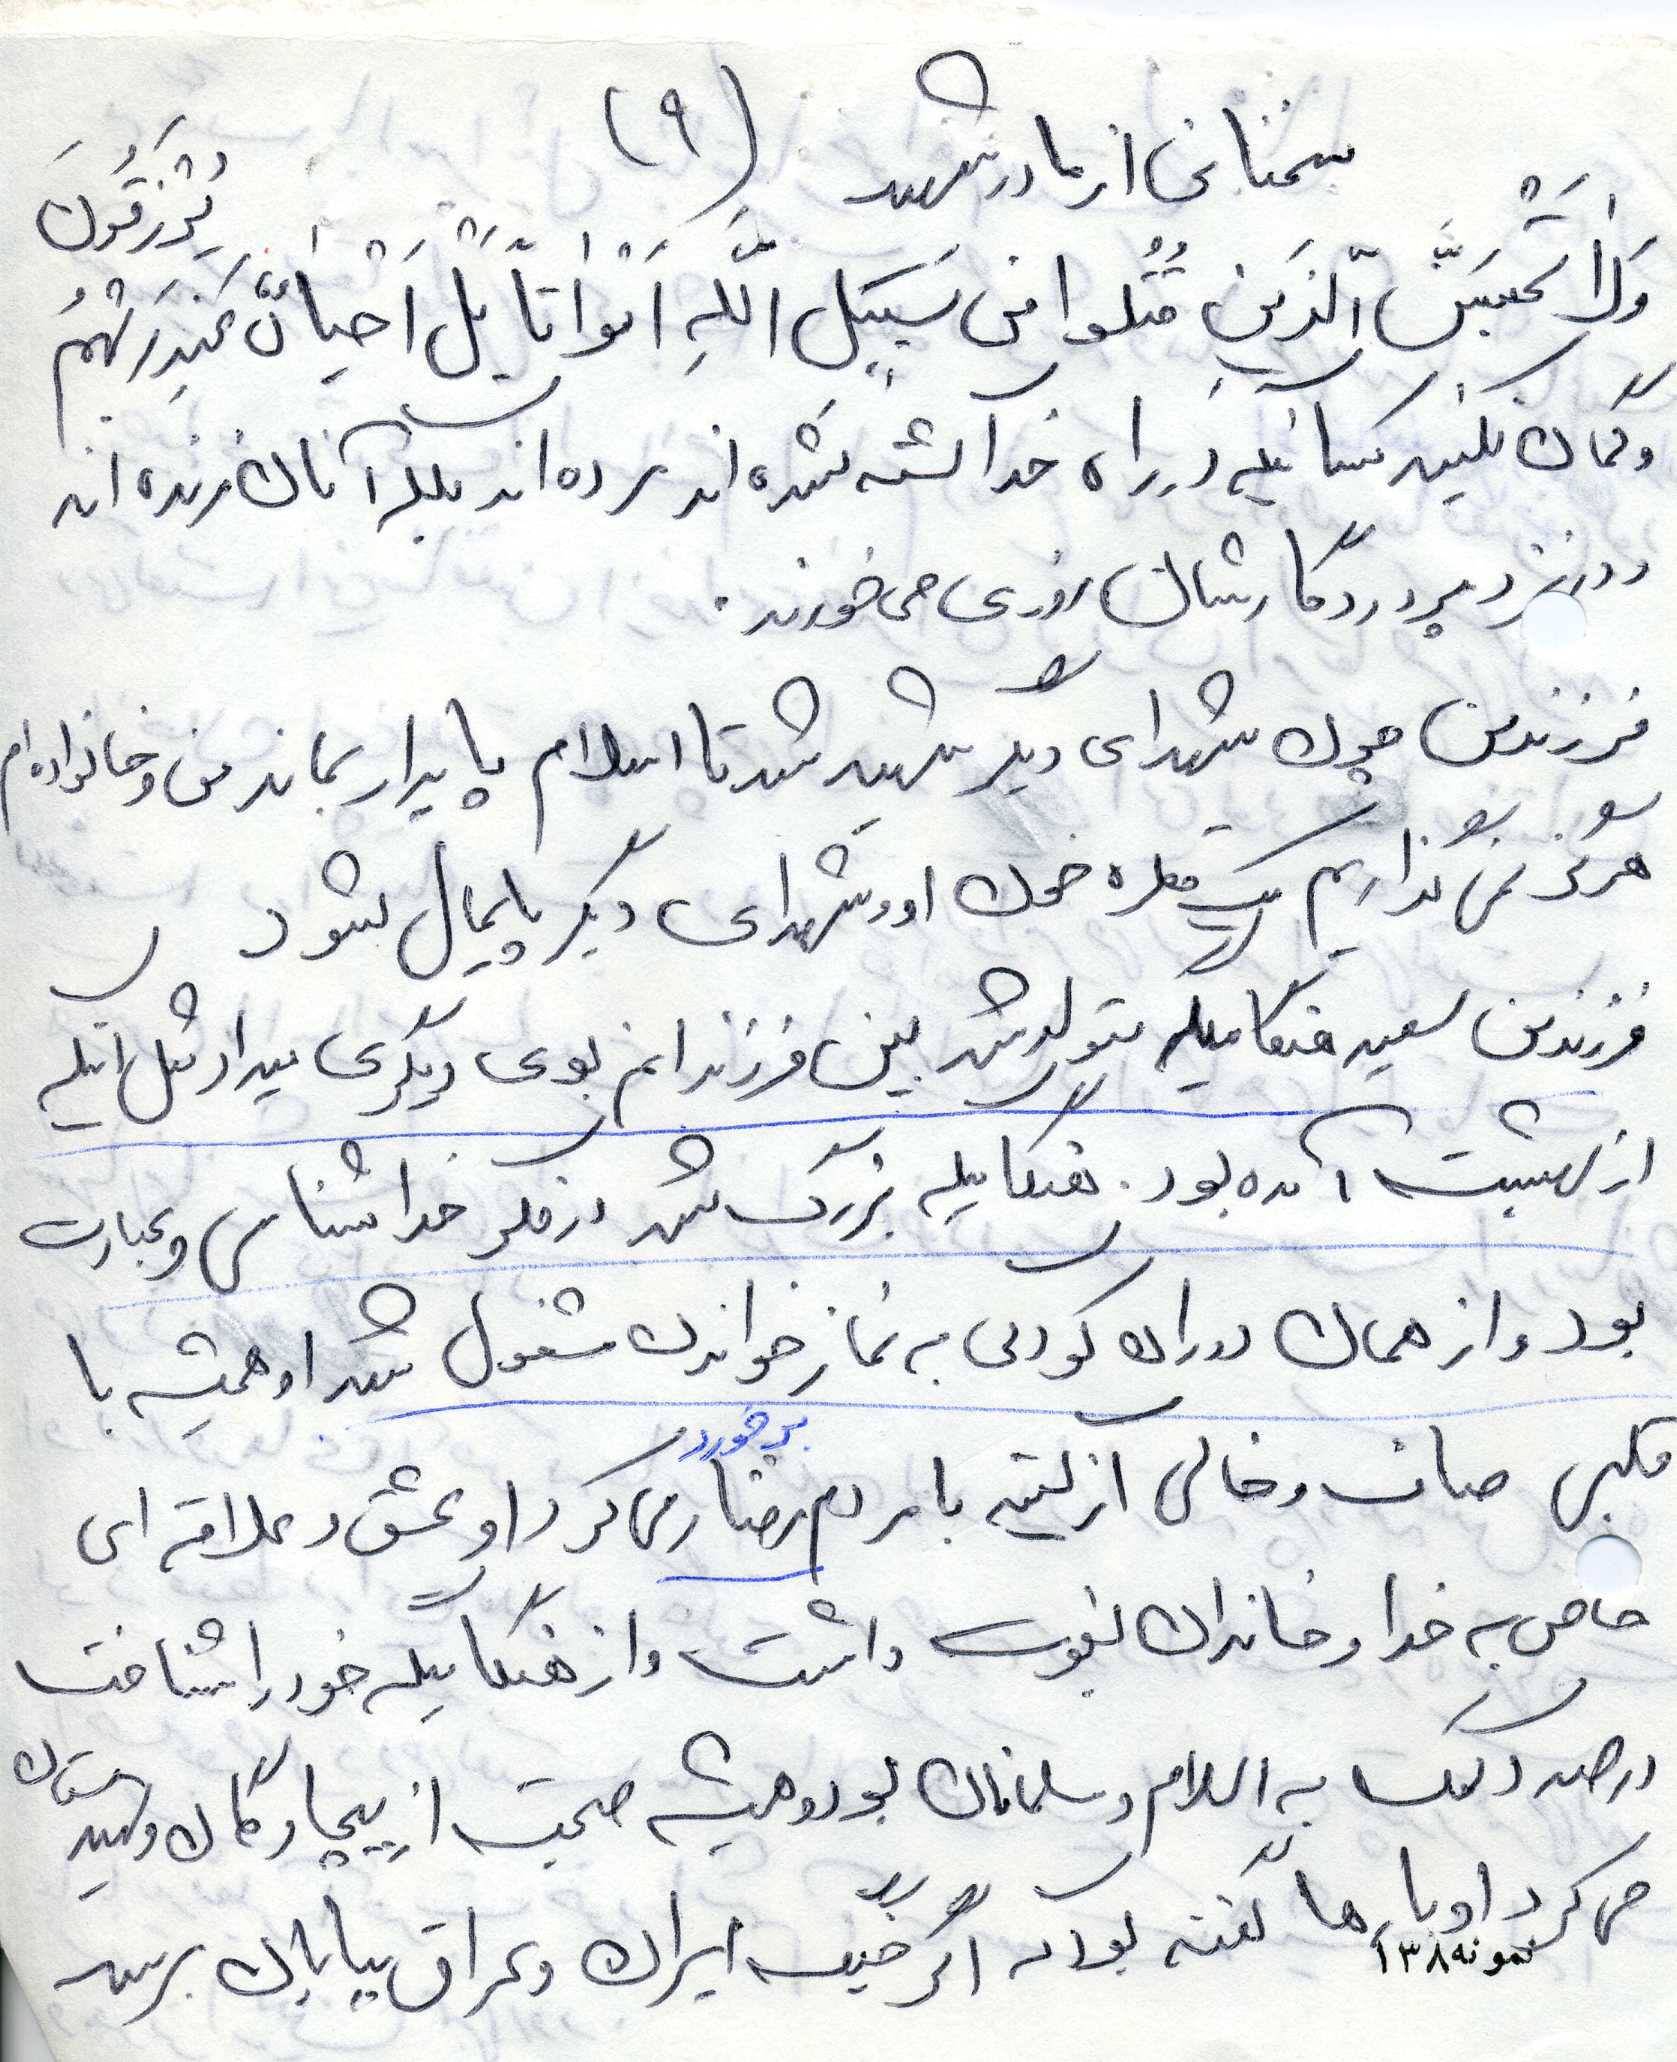 سخنانی از مادر شهید (۹)
وَلاٰ تَحْسَبَنَّ الَّذینَ قُتُلوا فی سَبیٖل اللّهِ اَمْوٰاتاً بَلْ اَحْیٰاءٌ عِنْدَ رَبِّهِمْ یُرْزَقُونَ
و گمان نکنید کسانیکه در راه خدا کشته شده اند مرده اند بلکه آنان زنده اند
و در نزد پروردگارشان روزی می خورند.
فرزند من چون شهدای دیگر شهید شد تا اسلام پایدار بماند من و خانواده ام
هرگز نمی گذاریم یک قطره خون او و شهدای دیگر پایمال شود
فرزند من سعید هنگامیکه متولد شد بین فرزندانم بوی دیگری میداد مثل اینکه
از بهشت آمده بود. هنگامیکه بزرگ شد در فکر خداشناسی و عبادت
بود و از همان دوران کودکی به نماز خواندن مشغول شد او همیشه با
قلبی صاف و خالی از کینه با مردم رفتار می کرد او عشق و علاقه ای
برخورد
خاص به خدا و خاندان نبوت داشت و از هنگامیکه خود را شناخت
در صدد کمک به اسلام و مسلمانان بود و همیشه صحبت از بیچارگان و تهیدستان
می کرد او بارها گفته بود که اگر جنگ ایران و عراق بپایان برسد
نمونه ۱۳۸